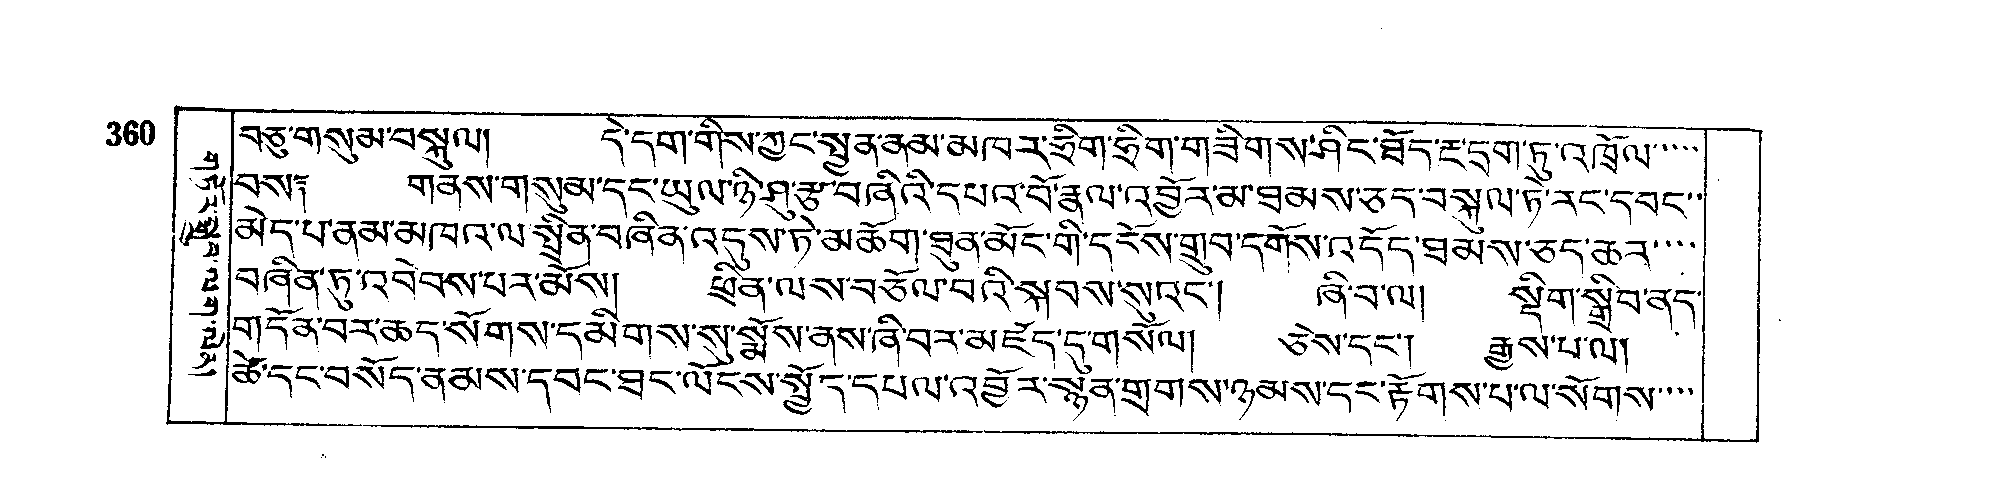 360
བཅུ་གསུམ་བསྐུལ། དེ་དག་གིས་ཀྱང་སྤྱན་ནམ་མཁར་ཧྲིག་ཧྲིག་གཟིགས་ཤིང་ཐོད་རྔ་དྲག་ཏུ་འཁྲོལ་····
བས༔ གནས་གསུམ་དང་ཡུལ་ཉི་ཤུ་རྩ་བཞིའི་དཔའ་བོ་རྣལ་འབྱོར་མ་ཐམས་ཅད་བསྐུལ་ཏེ་རང་དབང་··
མེད་པ་ནམ་མཁའ་ལ་སྤྲིན་བཞིན་འདུས་ཏེ་མཆོག་ཐུན་མོང་གི་དངོས་གྲུབ་དགོས་འདོད་ཐམས་ཅད་ཆར་····
བཞིན་ཏུ་འབེབས་པར་མོས། ཕྲིན་ལས་བཅོལ་བའི་སྐབས་སུའང་། ཞི་བ་ལ། སྡིག་སྒྲིབ་ནད་
གདོན་བར་ཆད་སོགས་དམིགས་སུ་སྨོས་ནས་ཞི་བར་མཛོད་དུ་གསོལ། ཅེས་དང་། རྒྱས་པ་ལ།
ཚེ་དང་བསོད་ནམས་དབང་ཐང་ལོངས་སྤྱོད་དཔལ་འབྱོར་སྙན་གྲགས་ཉམས་དང་རྟོགས་པ་ལ་སོགས་····